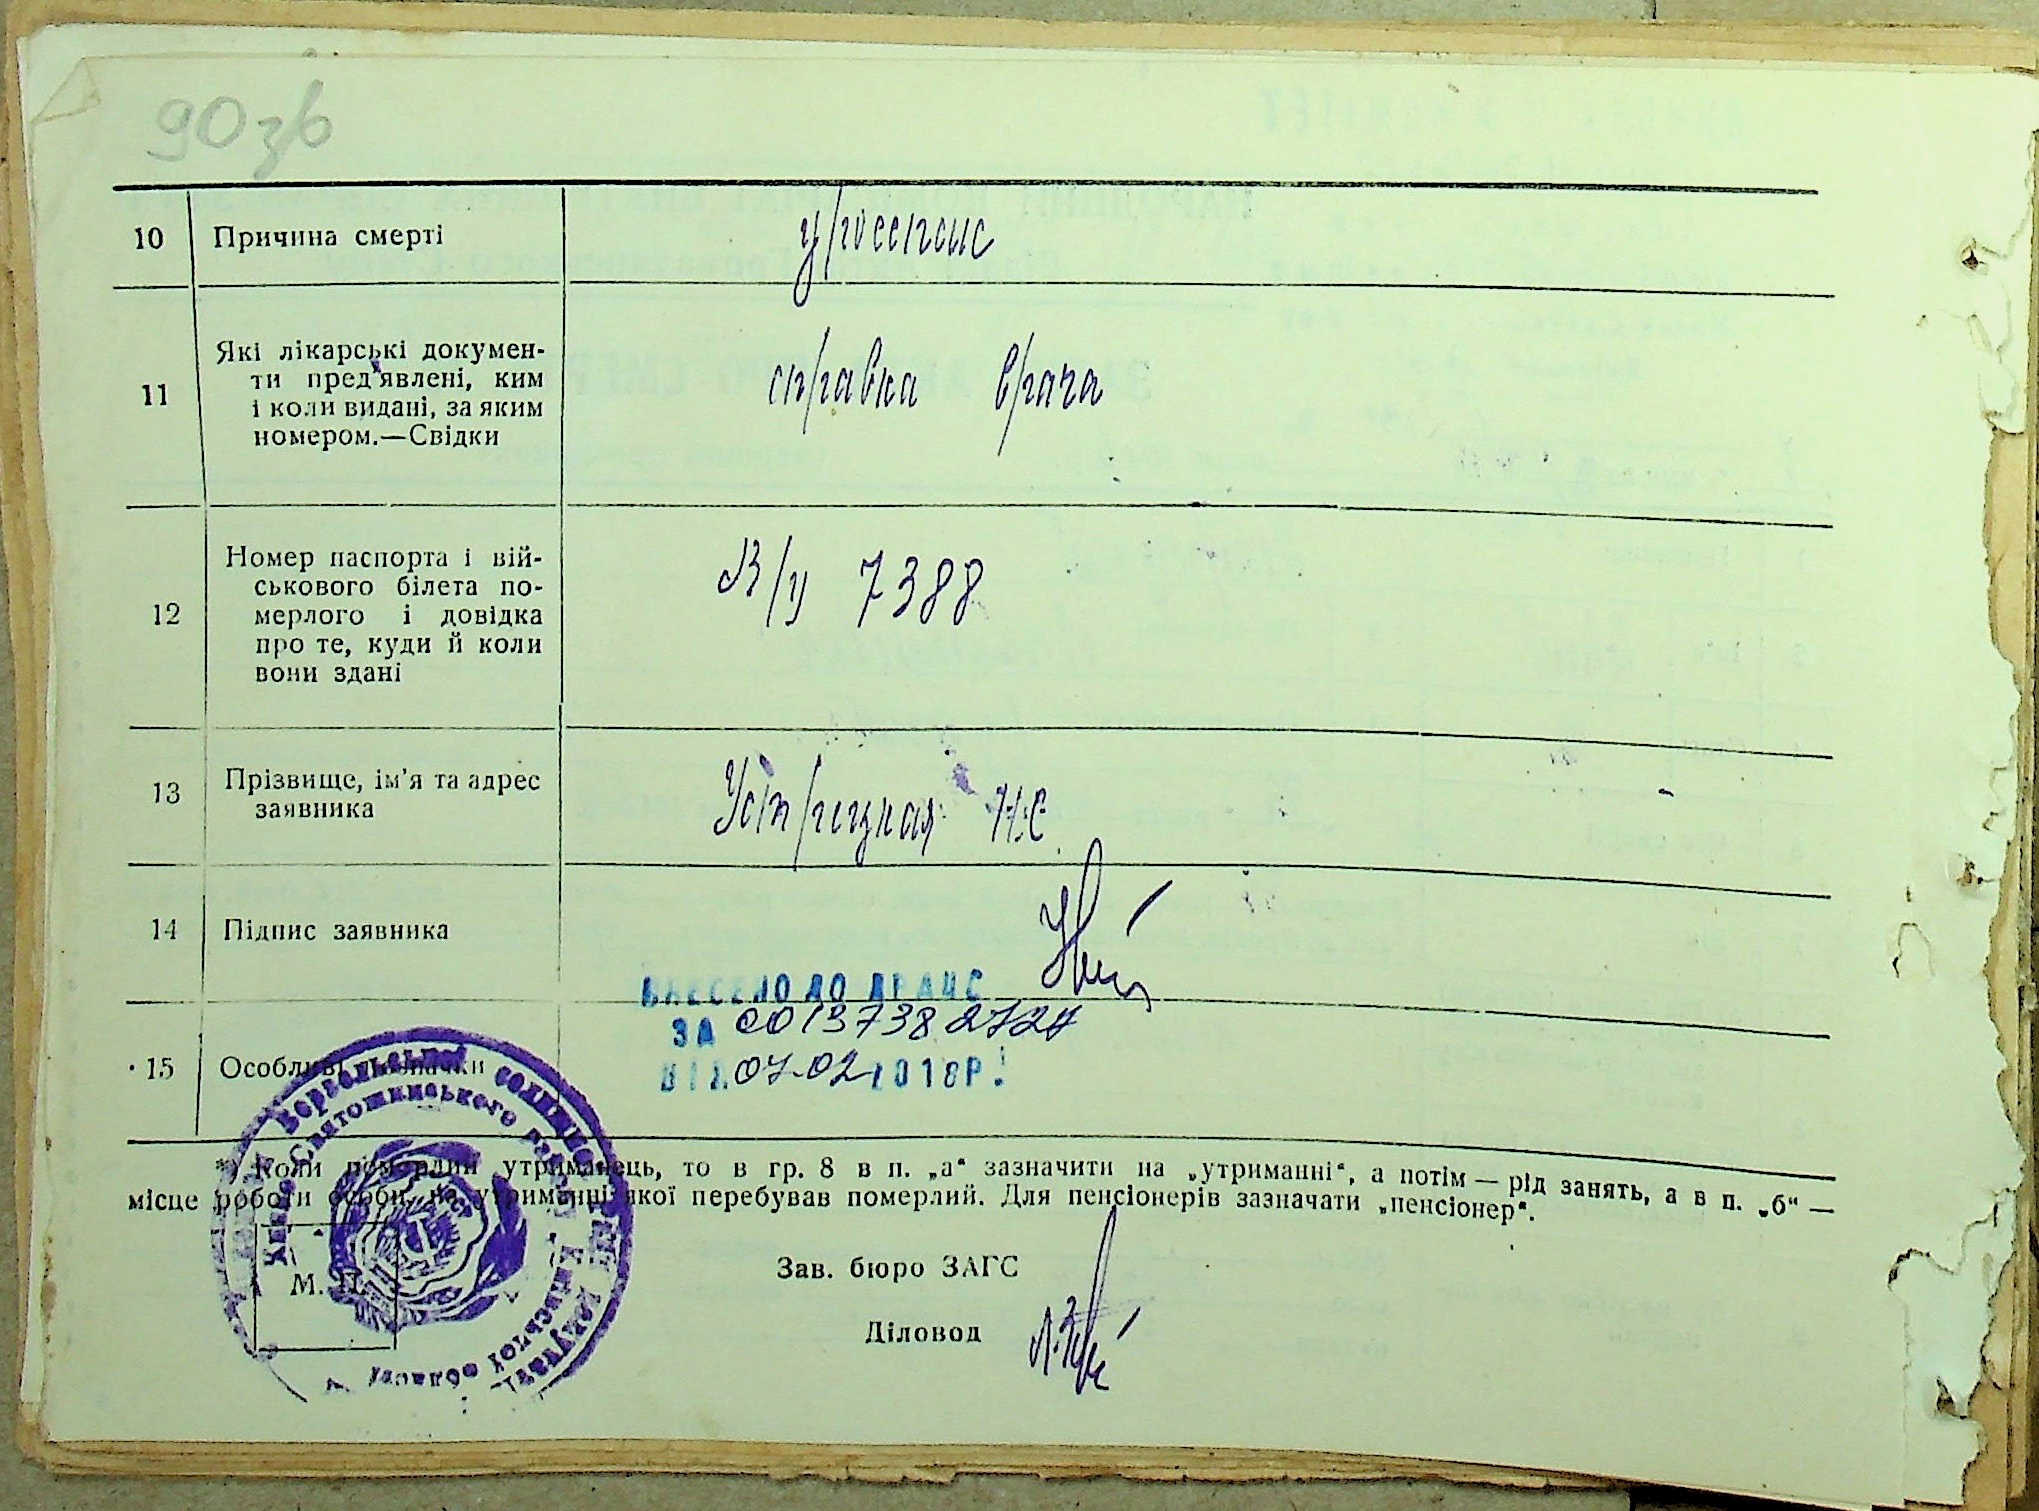 90зв
10 Причина смерті
11 Які лікарські докумен-
ти пред'явлені, ким
і коли видані, за яким
номером.—Свідки
справка врача
12 Номер паспорта і вій-
ськового білета по-
мерлого і довідка
про те, куди й коли
вони здані
7388
13 Прізвище, ім'я та адрес
заявника
14 Підпис заявника
ВНЕСЕНО ДО ДРАЦС
ЗА 00137382727
15 Особливі позначки
ВІД 07.02 2018Р.
*) Коли померлий утриманець, то в гр. 8 в п. „а“ зазначити на „утриманні“, а потім — рід занять, а в п. „б“ —
місце роботи особи, на утриманні якої перебував померлий. Для пенсіонерів зазначати „пенсіонер“.
Зав. бюро ЗАГС
М. П.
Діловод
Києво-Святошинського району Київської області